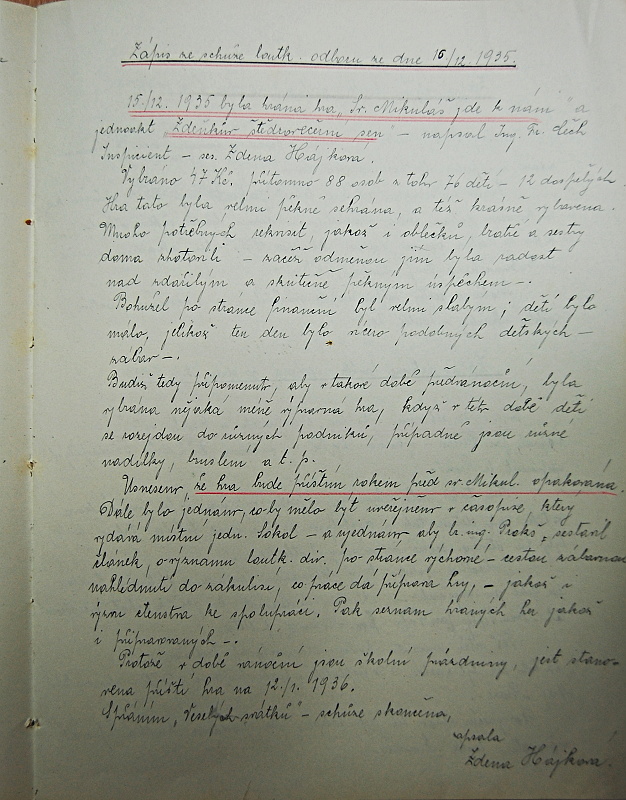 Zápis ze schůze loutk. odboru ze dne 15/12. 1935.
15./12. 1935 byla hrána hra „Sv. Mikuláš jde k nám" a
jednoakt „Zdeňkův štědrovečerní sen" – napsal Ing. Fr. Čech
Inspicient – ses. Zdena Hájková.
Vybráno 47 Kč, přítomno 88 osob z toho 76 dětí – 12 dospělých.
Hra tato byla velmi pěkně sehrána, a též krásně vybavena.
Mnoho potřebných rekvisit, jakož i oblečků, bratři a sestry
doma zhotovili – začež odměnou jim byla radost
nad zdařilým a skutečně pěkným úspěchem –.
Bohužel po stránce finanční byl velmi slabým; dětí bylo
málo, jelikož ten den bylo více podobných dětských –
zábav –.
Budiž tedy připomenuto, aby v takové době předvánoční, byla
vybrána nějaká méně výpravná hra, když v této době děti
se rozejdou do různých podniků, případně jsou různé
nadílky, bruslení a t. p.
Usneseno, že hra bude příštím rokem před sv. Mikul. opakována.
Dále bylo jednáno, co by mělo být uveřejněno v časopise, který
vydává místní jedn. Sokol – a ujednáno aby br. ing. Prokš, sestavil
článek, o významu loutk. div. po stránce výchovné – cestou zábavnou
nahlédnutí do zákulisí, co práce dá příprava hry, – jakož i
výzvu čtenstva ke spolupráci. Pak seznam hraných her jakož
i připravovaných –.
Protože v době vánoční jsou školní prázdniny, jest stano-
vena příští hra na 12./1. 1936.
S přáním „Veselých svátků" – schůze skončena,
zapsala
Zdena Hájková.